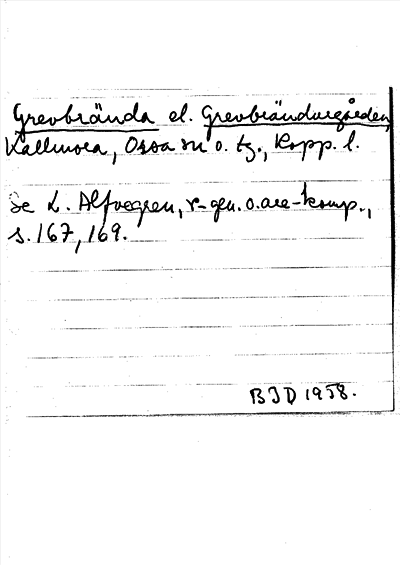 Grevbrända el. Grevbrändargården,
Kallmora, Orsa sn o. tg., Kopp. l.
Se L. Alfvegren, r-gen. o. are-komp.,
s. 167, 169.
BJD 1958.